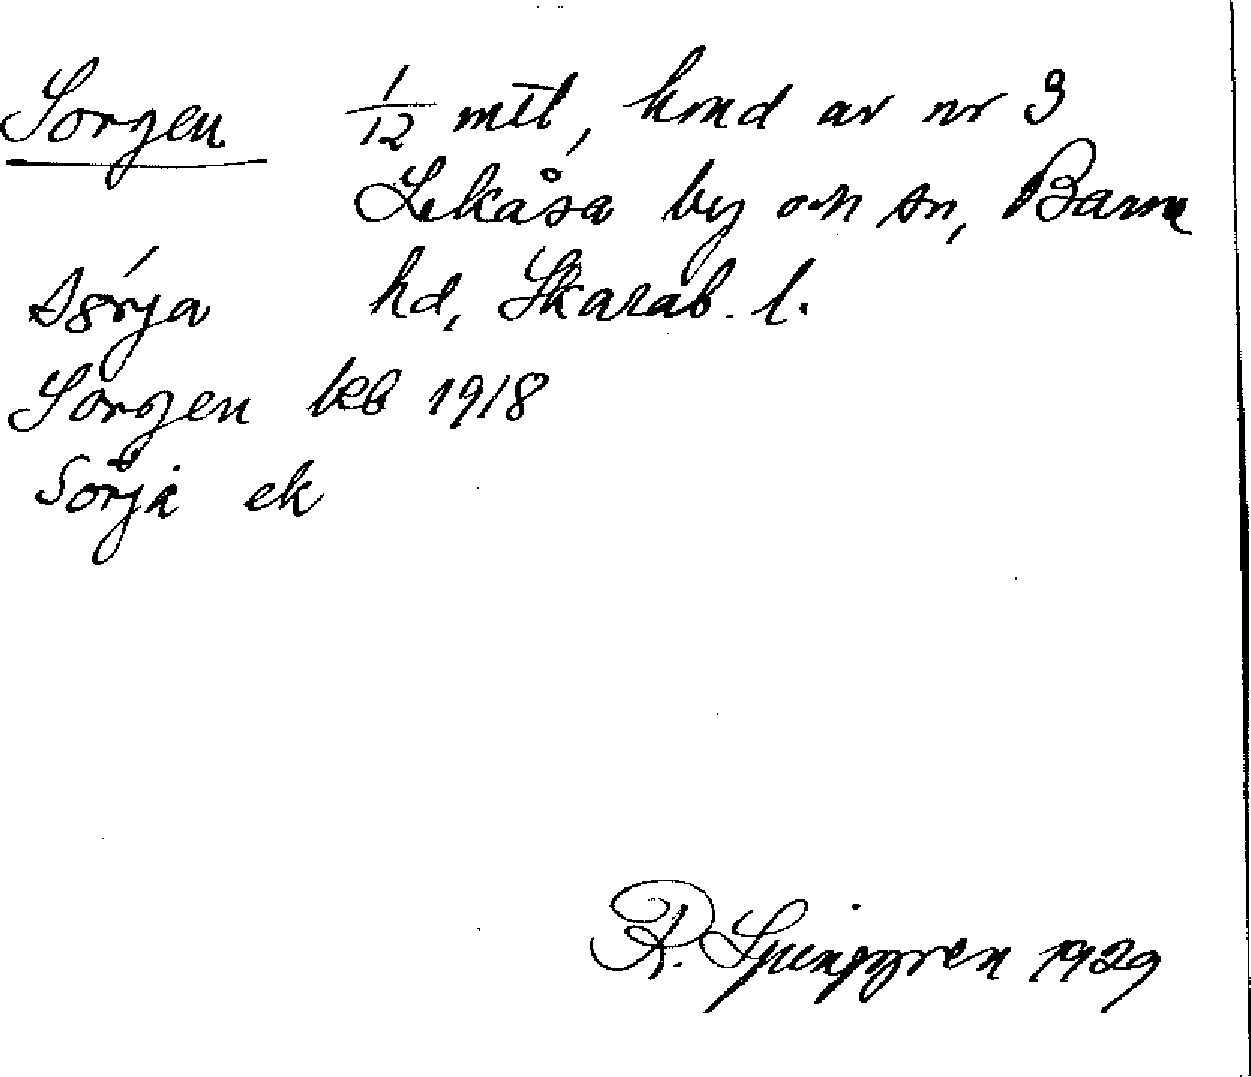 Sorgen 1/12 mtl, hmd av nr 3
Lekåsa by och sn, Barne
hd, Skarab. l.
Sorgen kb 1918
Sörjå ek
R. Ljunggren 1929